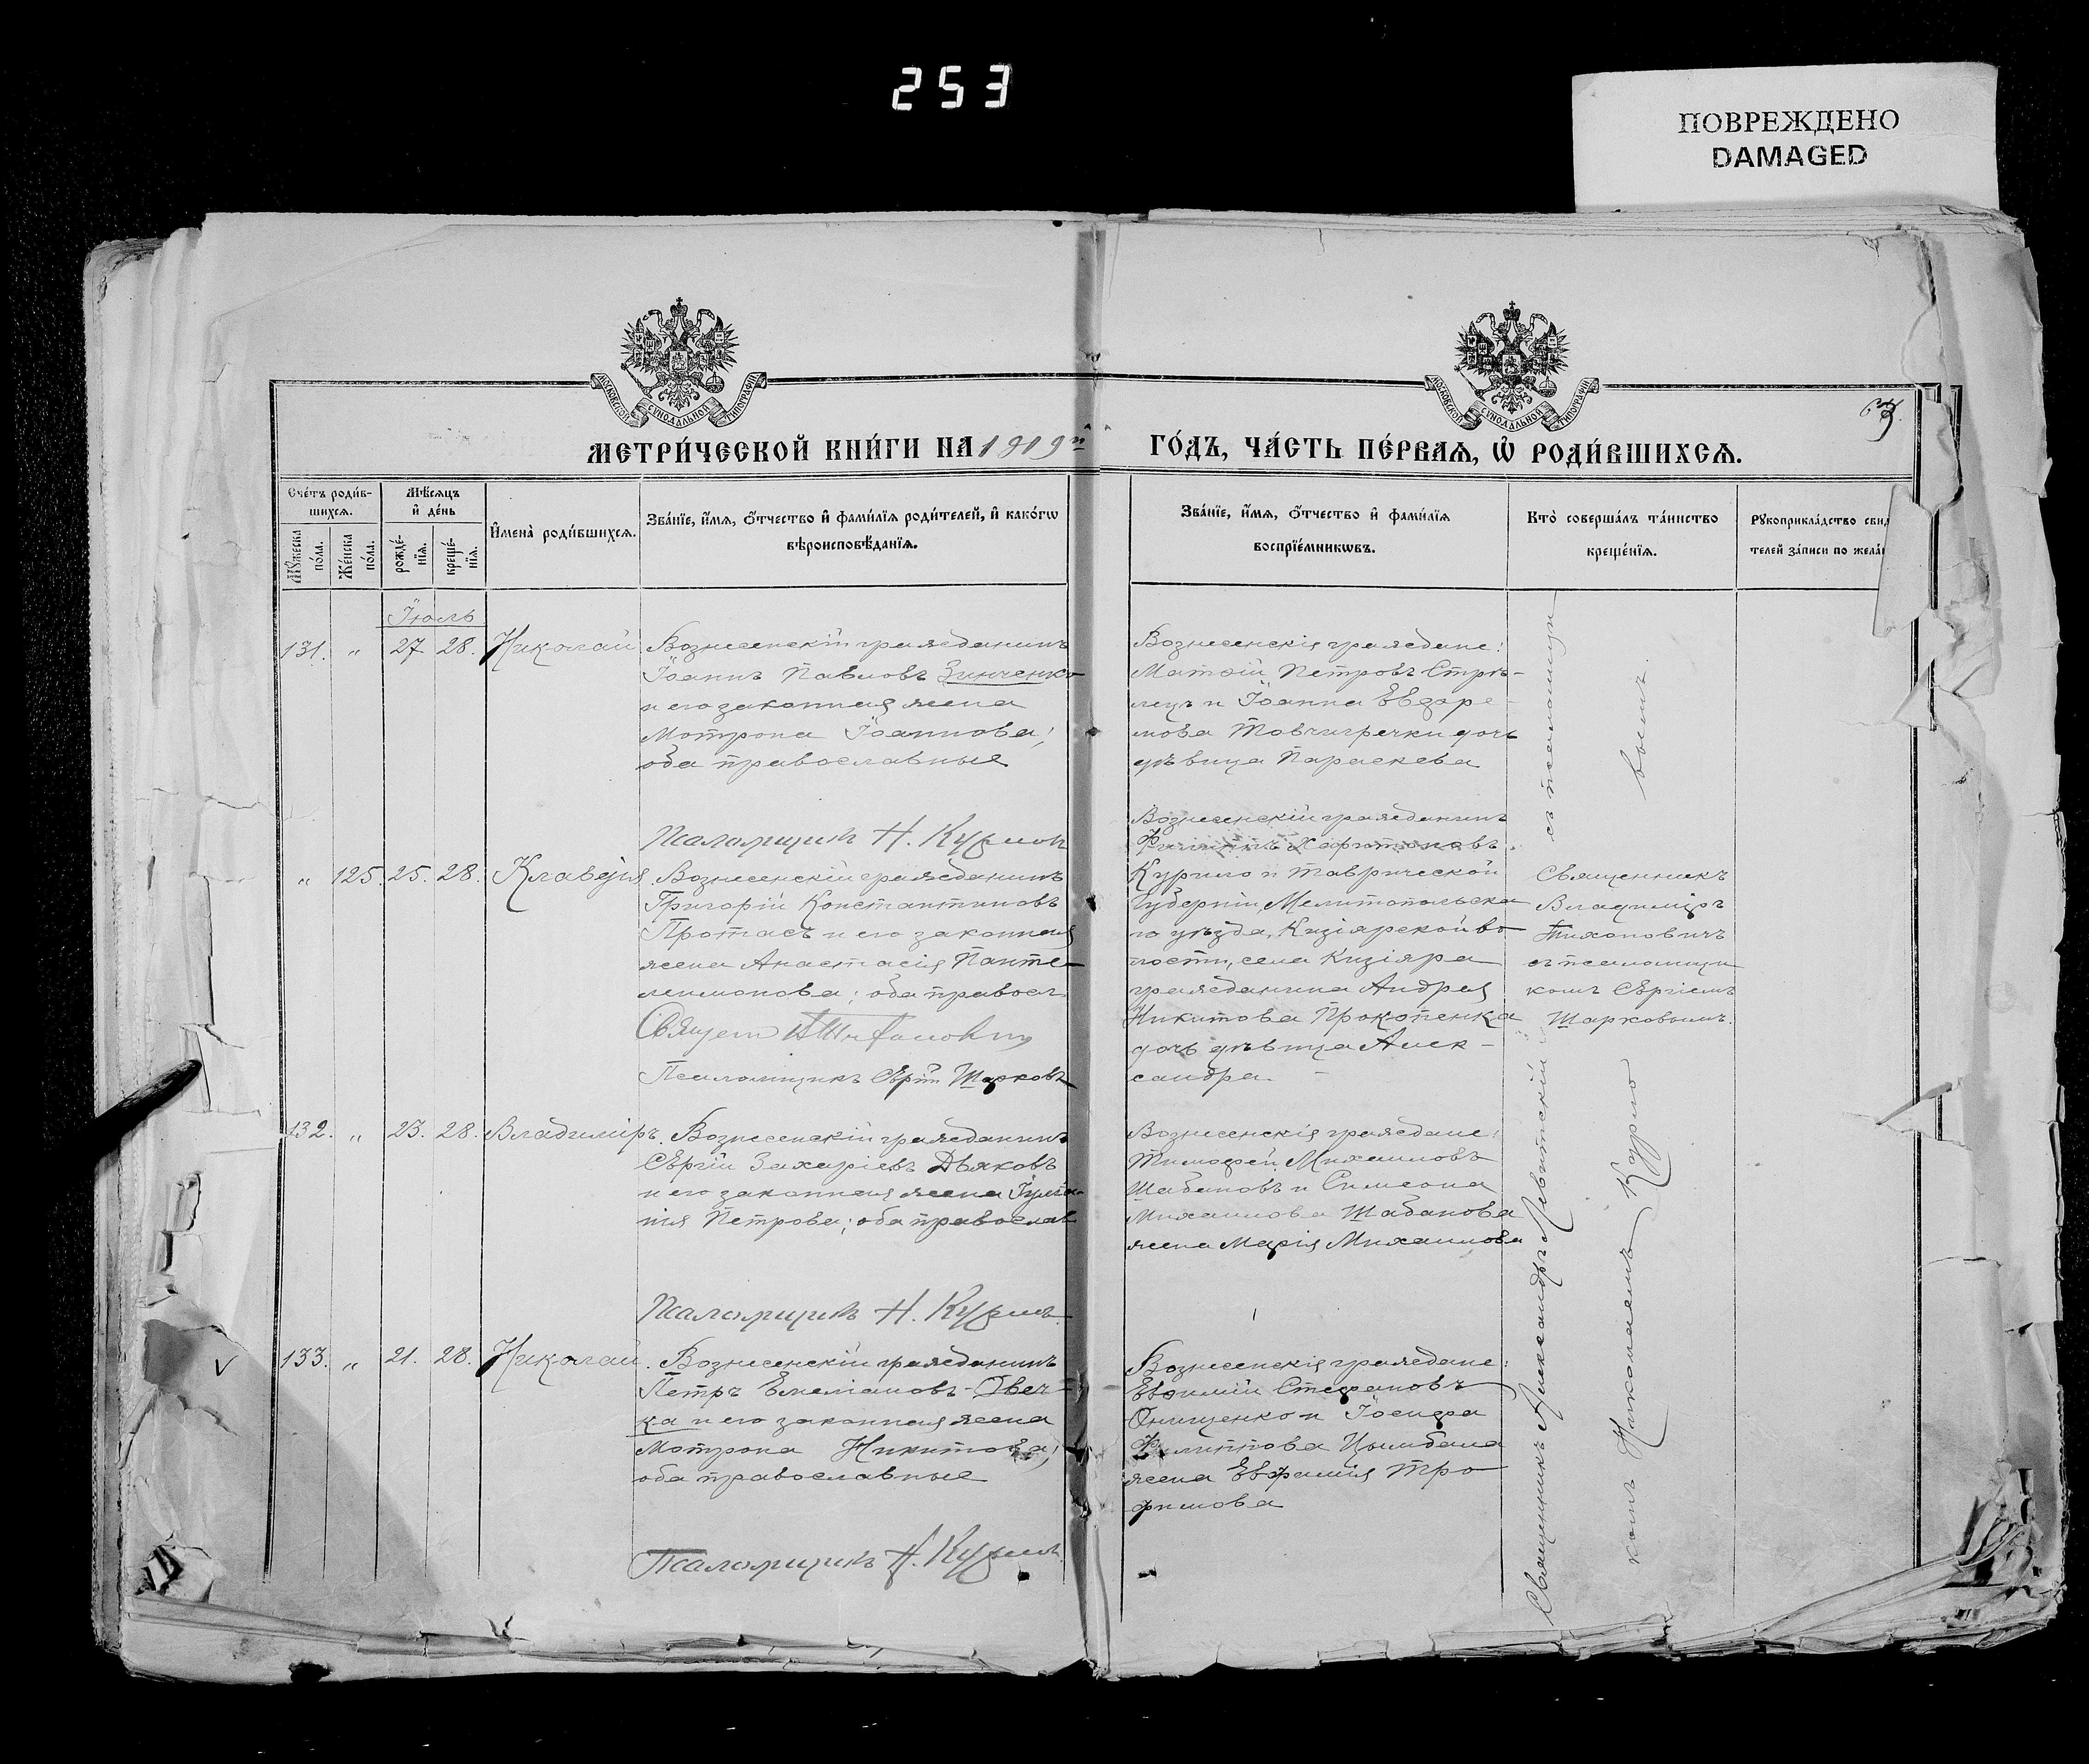 253
ПОВРЕЖДЕНО
DAMAGED
МОСКОВСКОЙ СѴНОДАЛЬНОЙ ТИПОГРАФІИ
МОСКОВСКОЙ СѴНОДАЛЬНОЙ ТИПОГРАФІИ
МЕТРИ́ЧЕСКОЙ КНИ́ГИ НА 1909й ГО́ДЪ, ЧА́СТЬ ПЕ́РВАѦ, Ѡ҆ РОДИ́ВШИХСѦ.
Сче́тъ роди́в-
шихсѧ.
Мѣ́сѧцъ
и҆ де́нь
Мꙋ́жеска по́ла.
Же́нска по́ла.
рожде́-
нїѧ.
креще́-
нїѧ.
И҆мена̀ роди́вшихсѧ.
Зва́нїе, и҆́мѧ, ѻ҆́тчество и҆ фами́лїѧ роди́телей, и҆ како́гѡ
вѣроисповѣ́данїѧ.
Зва́нїе, и҆́мѧ, ѻ҆́тчество и҆ фами́лїѧ
воспрїе́мникѡвъ.
Кто̀ соверша́лъ та́инство
креще́нїѧ.
Рꙋкоприкла́дство свид
телей за́писи по жела́
Іюль
131. " 27 28. Николай
Вознесенскій гражданинъ
Іоаннъ Павловъ Зинченко
и его законная жена
Мотрона Іоаннова;
оба православные
Псаломщикъ Н. Курило
Вознесенскіе граждане:
Матѳій Петровъ Стрѣ-
лецъ и Іоанна Евдоре-
мова Товчигречки дочь
дѣвица Параскева
" 125. 25. 28. Клавдія.
Вознесенскій гражданинъ
Григорій Константиновъ
Протасъ и его законная
жена Анастасія Панте-
леимонова; оба правосл.
Священ
Псаломщикъ Сергій Шарковъ
Вознесенскій гражданинъ
Филиппъ Харитоновъ
Курило и Таврической
Губерніи, Мелитопольска
го уѣзда, Кизіярской во
лости, села Кизіяра
гражданина Андрея
Никитова Прокопенка
дочь дѣвица Алек-
сандра.
Священникъ
Владиміръ
Тихоновичъ
съ псаломщи
комъ Сергіемъ
Шарковымъ.
132. " 23. 28. Владиміръ.
Вознесенскій гражданинъ
Сергій Захаріевъ Дьяковъ
и его законная жена Іулiа-
нія Петрова; оба православ
Псаломщикъ Н. Курило
Вознесенскіе граждане:
Тимофей Михаиловъ
Шабановъ и Симеона
Михаилова Шабанова
жена Марія Михаилова
133. " 21. 28. Николай.
Вознесенскій гражданинъ
Петръ Емеліановъ Овеч-
ка и его законная жена
Мотрона Никитова;
оба православные
Псаломщикъ Н. Курило
Вознесенскіе граждане:
Евѳимій Стефановъ
Онищенко и Іосифа
Филиппова Цымбала
жена Евфимія Тро
фимова
Священникъ Александръ Левитскій съ псаломщи
комъ Николаемъ Курило
вымъ.